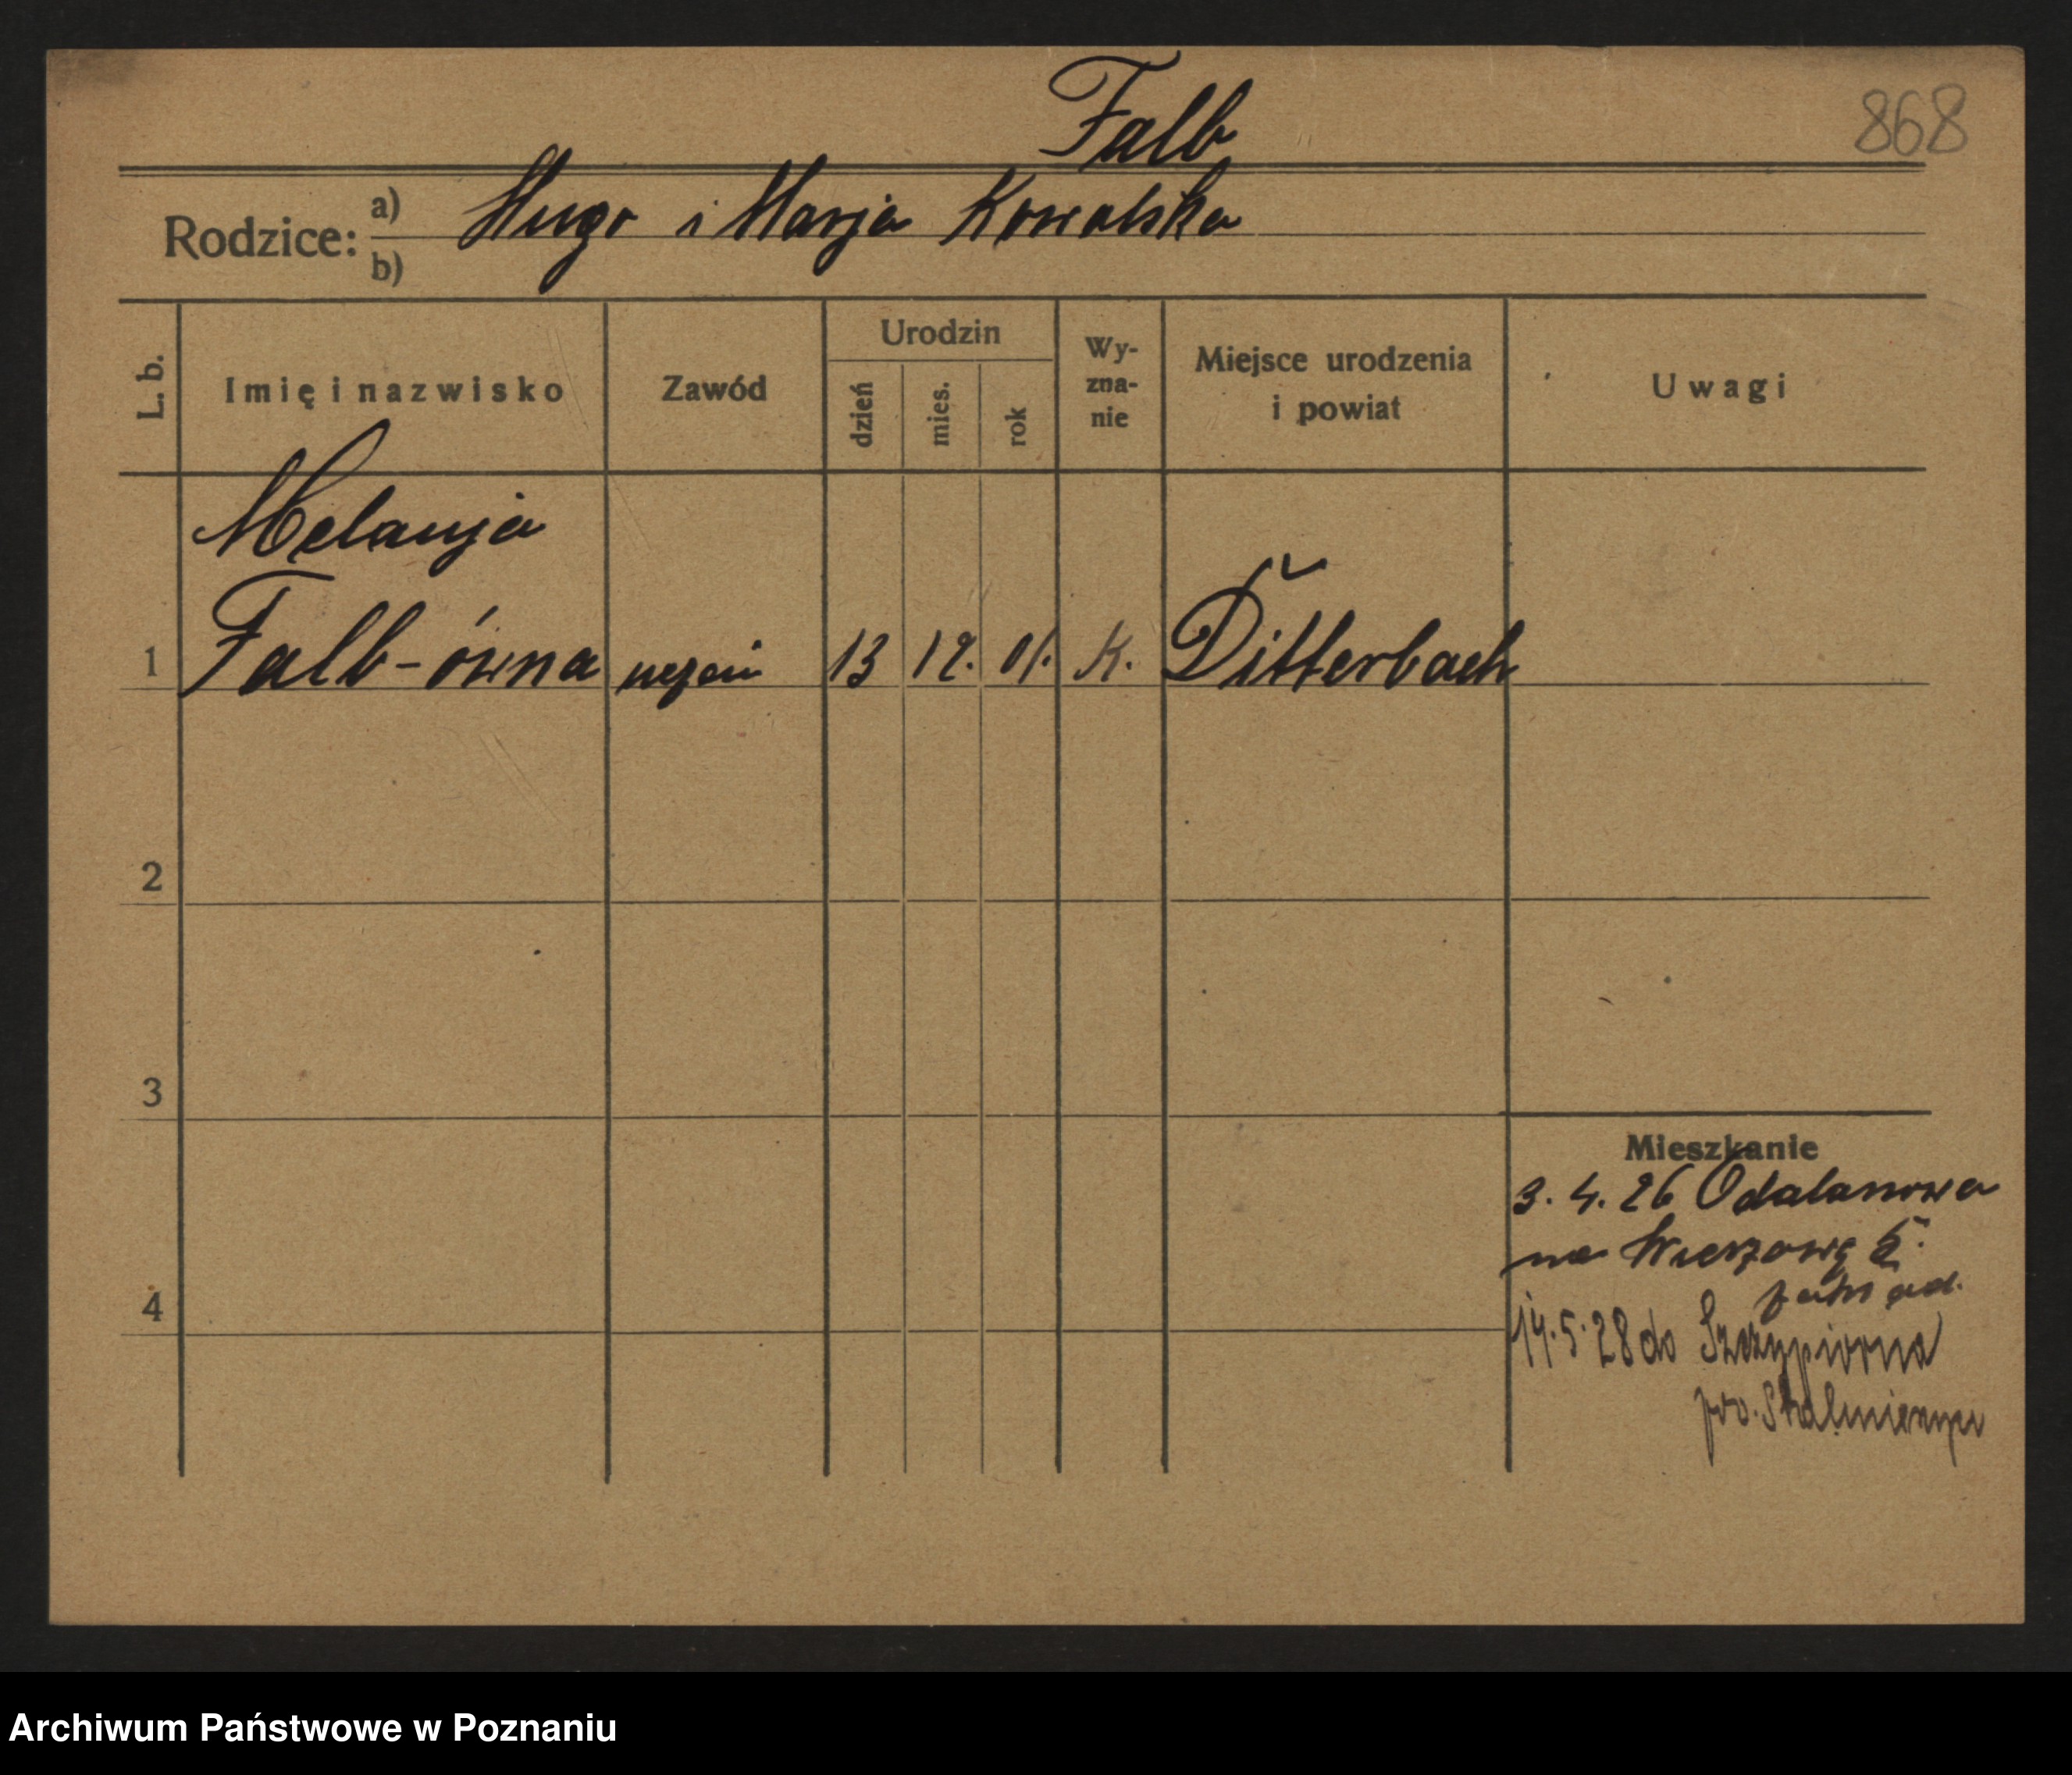 Falb
868
Rodzice: a) Hugo i Marja Kowalska
b)
L. b.
Imię i nazwisko
Zawód
Urodzin
dzień
mies.
rok
Wy-
zna-
nie
Miejsce urodzenia
i powiat
Uwagi
Melanja
1 Falb-ówna uczeń 13 12. 01. K. Ditterbach
2
3
4
Mieszkanie
3. 4. 26 Odalanowa
na Wieżową 5.
14.5.28 do Szczypiorna
Archiwum Państwowe w Poznaniu